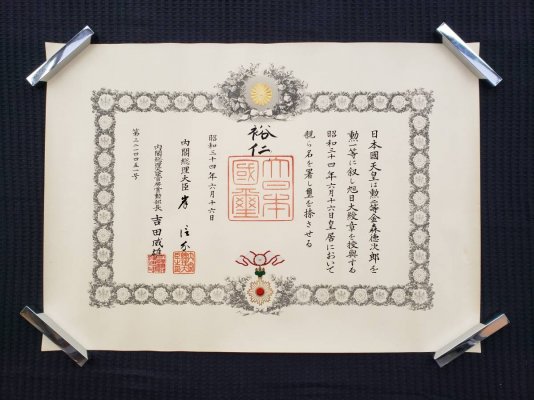 日本國天皇は勲二等金森德次郎を
勲一等に叙し旭日大綬章を授與する
昭和三十四年六月十六日皇居において
親ら名を署し璽を捺させる
裕仁
大日本國璽
昭和三十四年六月十六日
内閣総理大臣 岸 信介
内閣総理大臣官房賞勲部長 吉田威雄